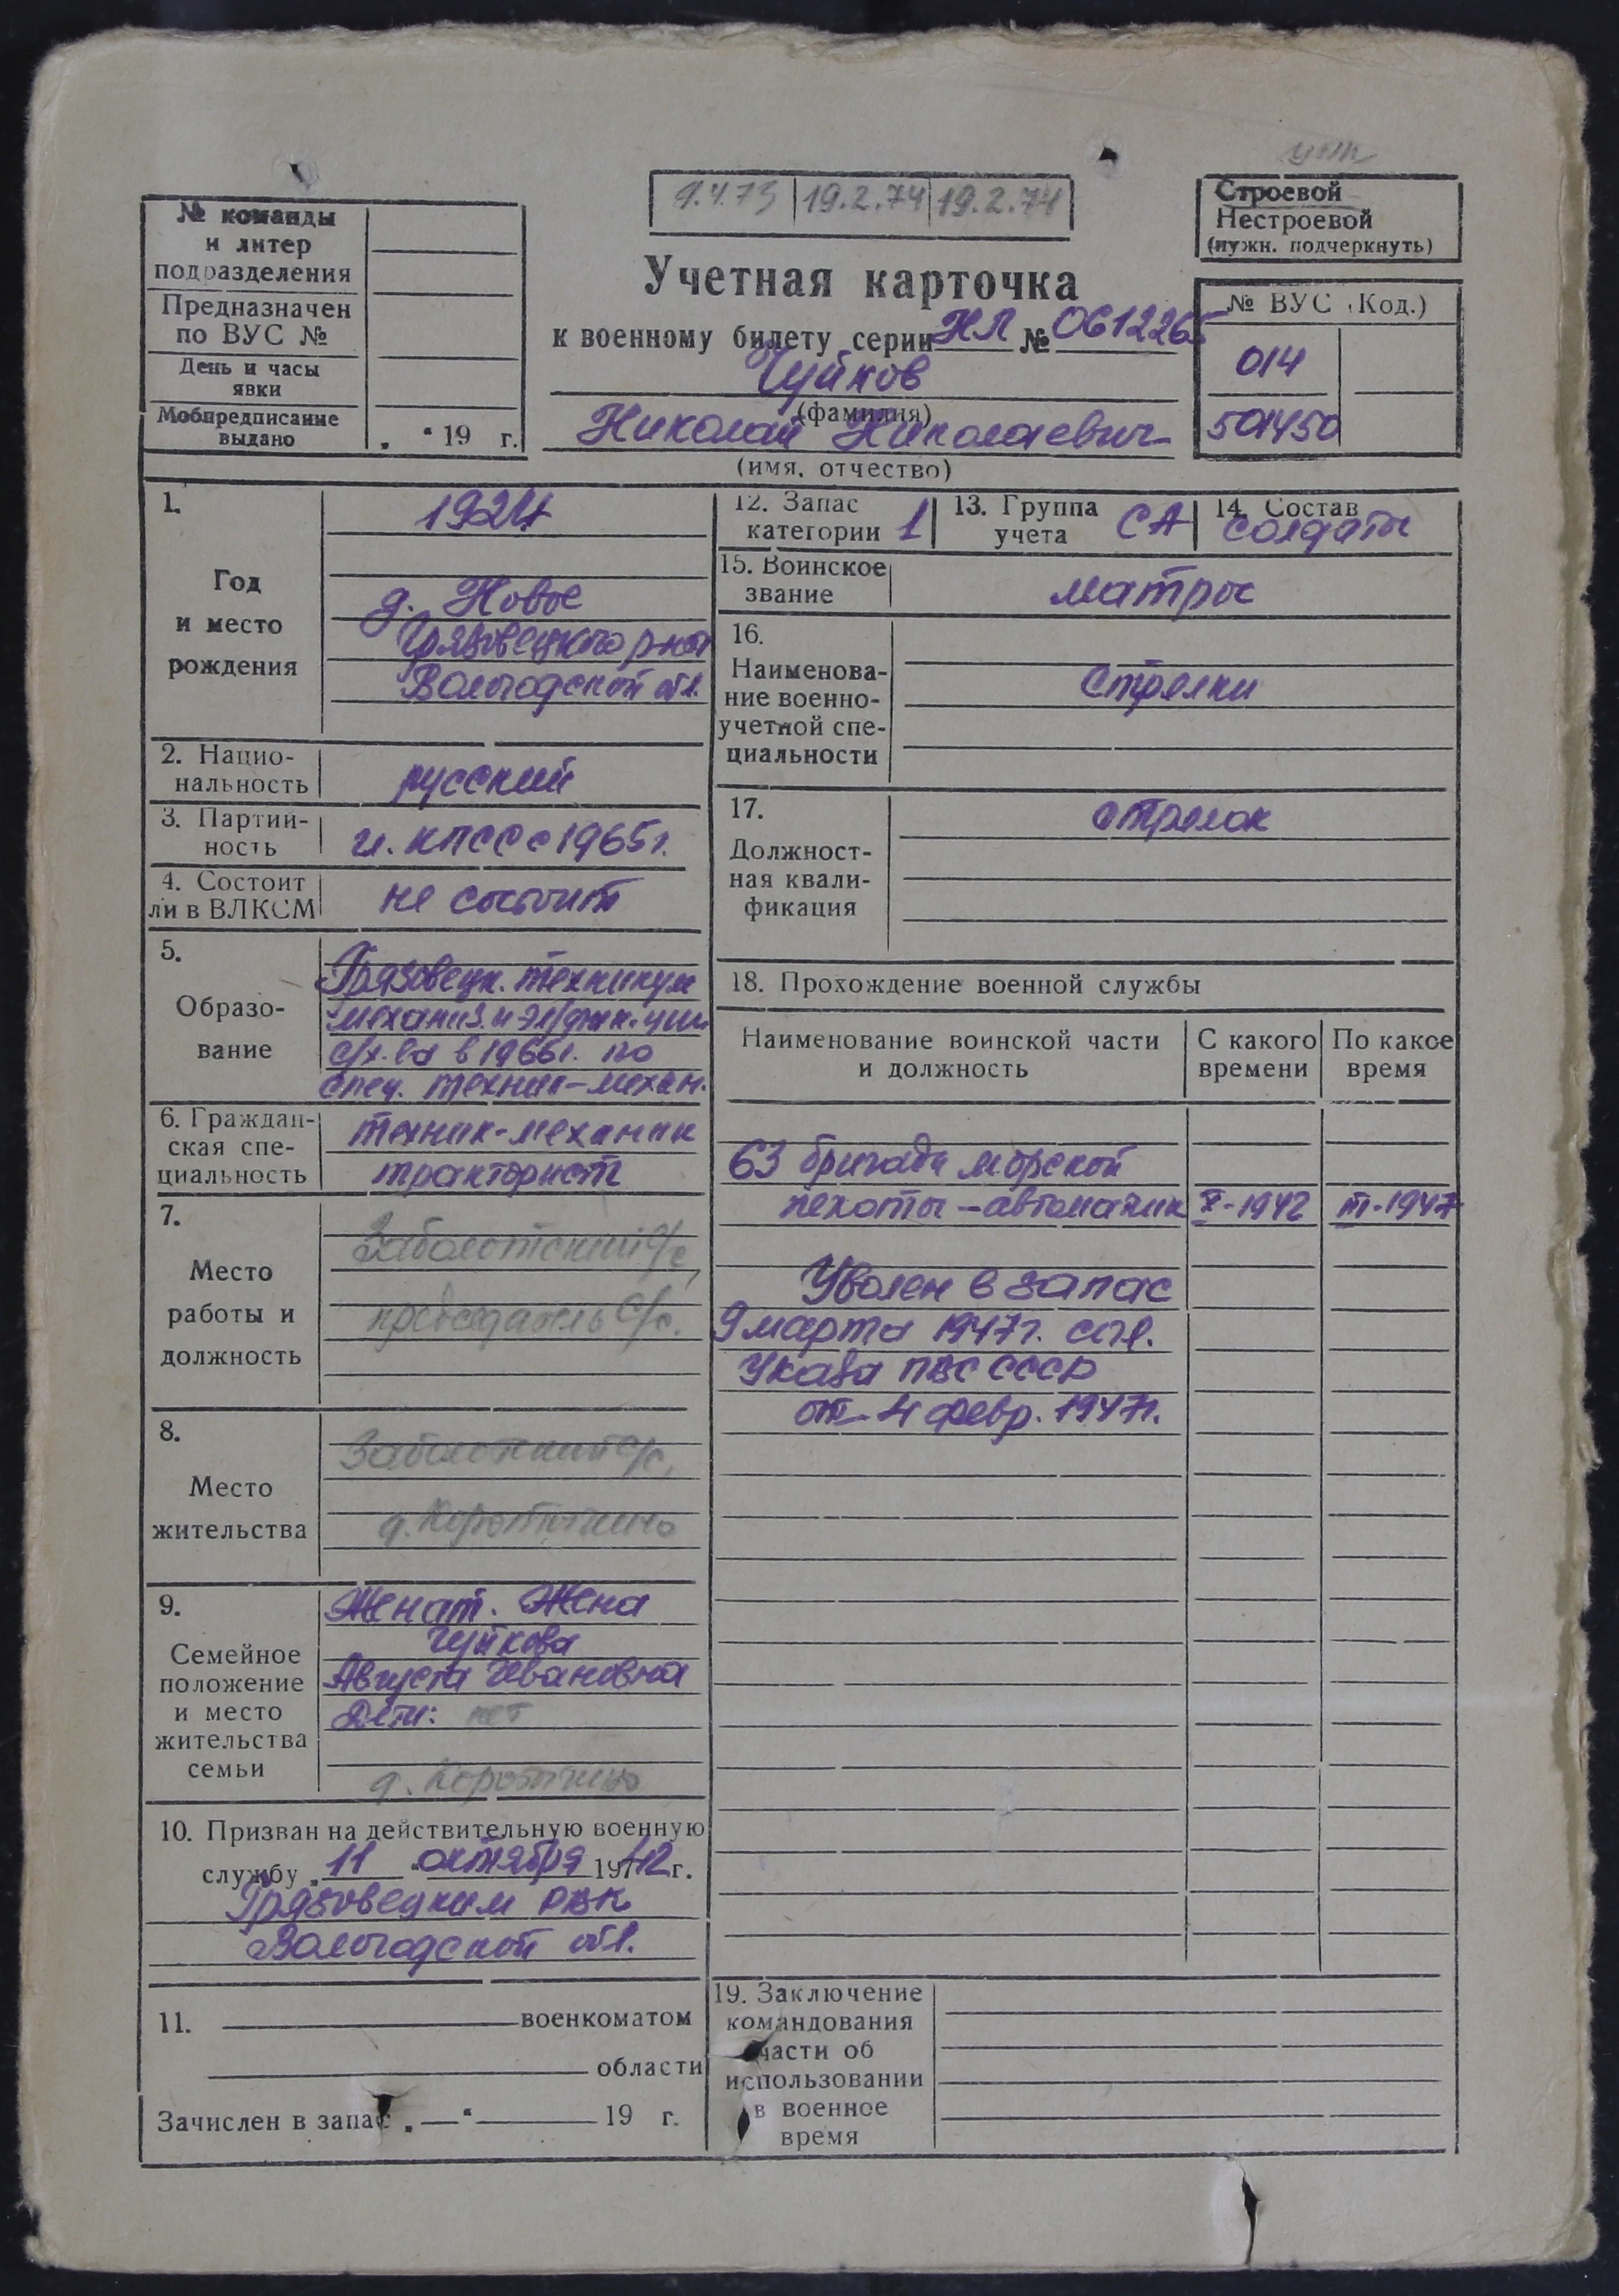 9.4.73 19.2.74 19.2.74
Строевой
Нестроевой
(нужн. подчеркнуть)
№ команды
и литер
подразделения
Предназначен
по ВУС №
День и часы
явки
Мобпредписание
выдано „ “ 19 г.
Учетная карточка
к военному билету серии НЛ № 0612265
Чуйков
(фамилия)
Николай Николаевич
(имя, отчество)
№ ВУС (Код.)
014
501450
1.
Год
и место
рождения
1924
д. Новое
Грязовецкого р-на
Вологодской обл.
2. Нацио-
нальность
русский
3. Партий-
ность
чл. КПСС с 1965 г.
4. Состоит
ли в ВЛКСМ
не состоит
5.
Образо-
вание
Грязовецк. техникум
механиз. и эл/фик-ции
с/х-ва в 1966 г. по
спец. техник-механ.
6. Граждан-
ская спе-
циальность
техник-механик
тракторист
7.
Место
работы и
должность
Заболотский с/с,
председатель с/с.
8.
Место
жительства
Заболотский с/с,
д. Коротыгино
9.
Семейное
положение
и место
жительства
семьи
Женат. Жена
Чуйкова
Августа Ивановна
Дети: нет
д. Коротыгино
10. Призван на действительную военную
службу „ 11 “ октября 1942 г.
Грязовецким РВК
Вологодской обл.
11. военкоматом
области
Зачислен в запас „ — “ 19 г.
12. Запас
категории 1
13. Группа
учета СА
14. Состав
солдаты
15. Воинское
звание
матрос
16.
Наименова-
ние военно-
учетной спе-
циальности
Стрелки
17.
Должност-
ная квали-
фикация
стрелок
18. Прохождение военной службы
Наименование воинской части
и должность
С какого
времени
По какое
время
63 бригада морской
пехоты – автоматчик X-1942 III-1947
Уволен в запас
9 марта 1947 г. согл.
Указа ПВС СССР
от 4 февр. 1947 г.
19. Заключение
командования
части об
использовании
в военное
время